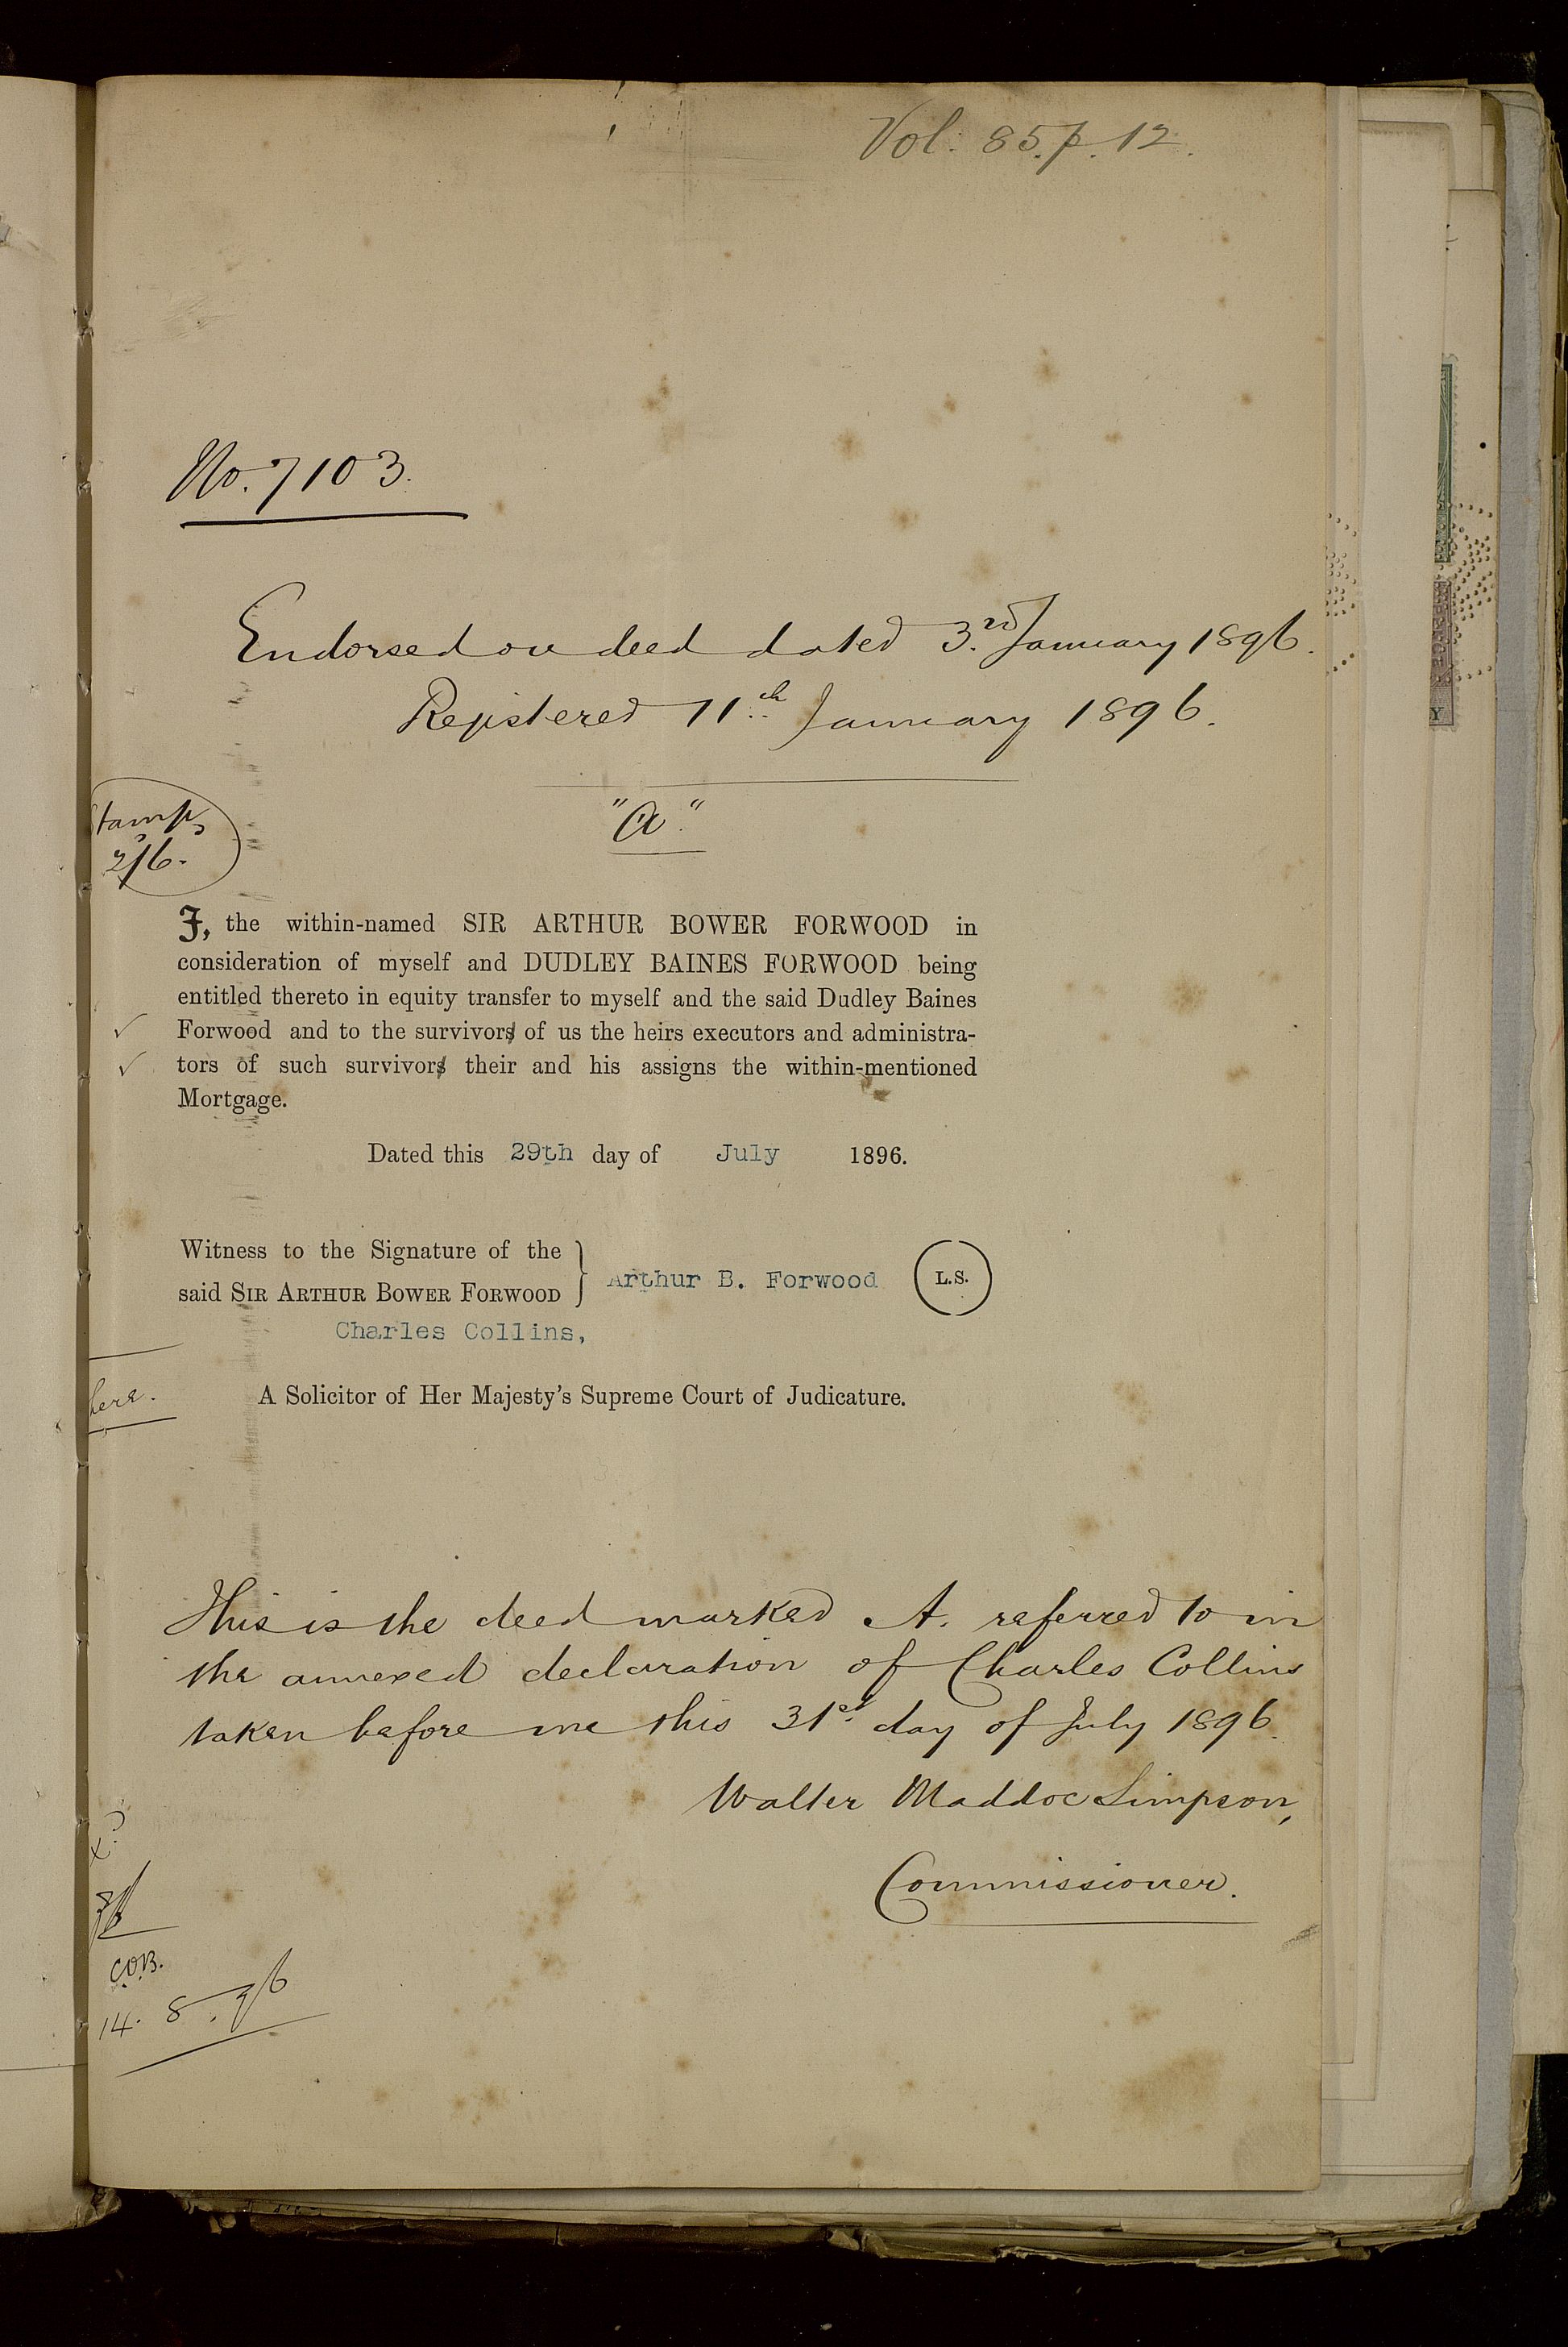 Vol. 85. p. 12.
No. 7103.
Endorsed on deed dated 3rd. January 1896.
Registered 11th January 1896.
"A."
Stamps
2/6.
I, the within-named SIR ARTHUR BOWER FORWOOD in
consideration of myself and DUDLEY BAINES FORWOOD being
entitled thereto in equity transfer to myself and the said Dudley Baines
Forwood and to the survivors of us the heirs executors and administra-
tors of such survivors their and his assigns the within-mentioned
Mortgage.
Dated this 29th day of July 1896.
Witness to the Signature of the
said SIR ARTHUR BOWER FORWOOD } Arthur B. Forwood L.S.
Charles Collins,
A Solicitor of Her Majesty's Supreme Court of Judicature.
This is the deed marked A. referred to in
the annexed declaration of Charles Collins
taken before me this 31st. day of July 1896.
Walter Maddoc Simpson,
Commissioner.
C.O.B.
14. 8. 96